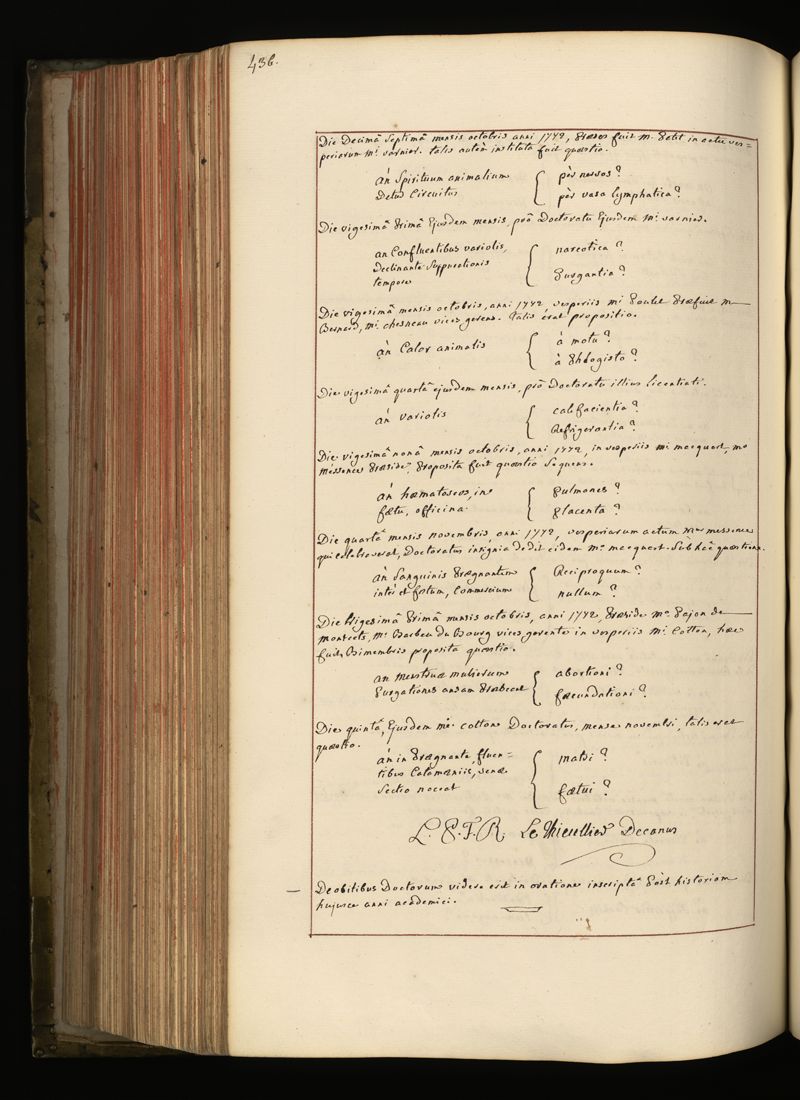 436.
Die Decimâ Septimâ mensis octobris anni 1772, Præses fuit M. Petit in actu ves=
periarum Mi. varnier. talis autem instituta fuit quæstio.
an Spirituum animalium { per nervos ?
Detur Circuitus { per vasa lymphatica ?
Die vigesimâ primâ Ejusdem mensis, pro Doctoratu Ejusdem Mi. varnier.
an Confluentibus variolis, { narcotica ?
Declinante Suppurationis
tempore { purgantia ?
Die vigesimâ mensis octobris, anni 1772 vesperiis mi Poulet Præfuit m
Bernard, Mi. chesneau vices gerens. talis erat propositio.
an Calor animalis { à motu ?
{ à Phlogisto ?
Die vigesimâ quartâ ejusdem mensis, pro Doctoratu illius licentiati.
an variolis { calefacientia ?
{ Refrigerantia ?
Die vigesimâ nonâ mensis octobris, anni 1772, in vesperiis mi. macquart, mo
Messence Præside, Proposita fuit quæstio Sequens.
an hæmatoseos, in { Pulmones ?
fœtu, officina. { Placenta ?
Die quartâ mensis novembris, anni 1772, vesperiarum actum messence
qui celebraverat, Doctoratus insignia dedit eidem Mo macquart. Sub hâc quæstione.
an Sanguinis Prægnantem { Reciproquum ?
inter et fœtum, Commercium { nullum ?
Die trigesimâ Primâ mensis octobris, anni 1772, Præside mo. Pajon de
Moncets, Mi. Barbeu du Bourg vices gerente in vesperiis Mi. Cotton, hæc
fuit Bimembris proposita quæstio.
an Menstruæ mulierum { abortioni ?
Purgationes ansam Præbeant { fæcundationi ?
Die quintâ, Ejusdem mi. cotton Doctoratus, mense novembri, talis erat
quæstio.
an in Prægnante, fluen= { matri ?
tibus Catameniis, venæ
Sectio noceat { fœtui ?
L. P. F. R. Le Thieullier Decanus
De obitibus Doctorum videre est in oratione inscriptâ Post historiam
hujusce anni academici.